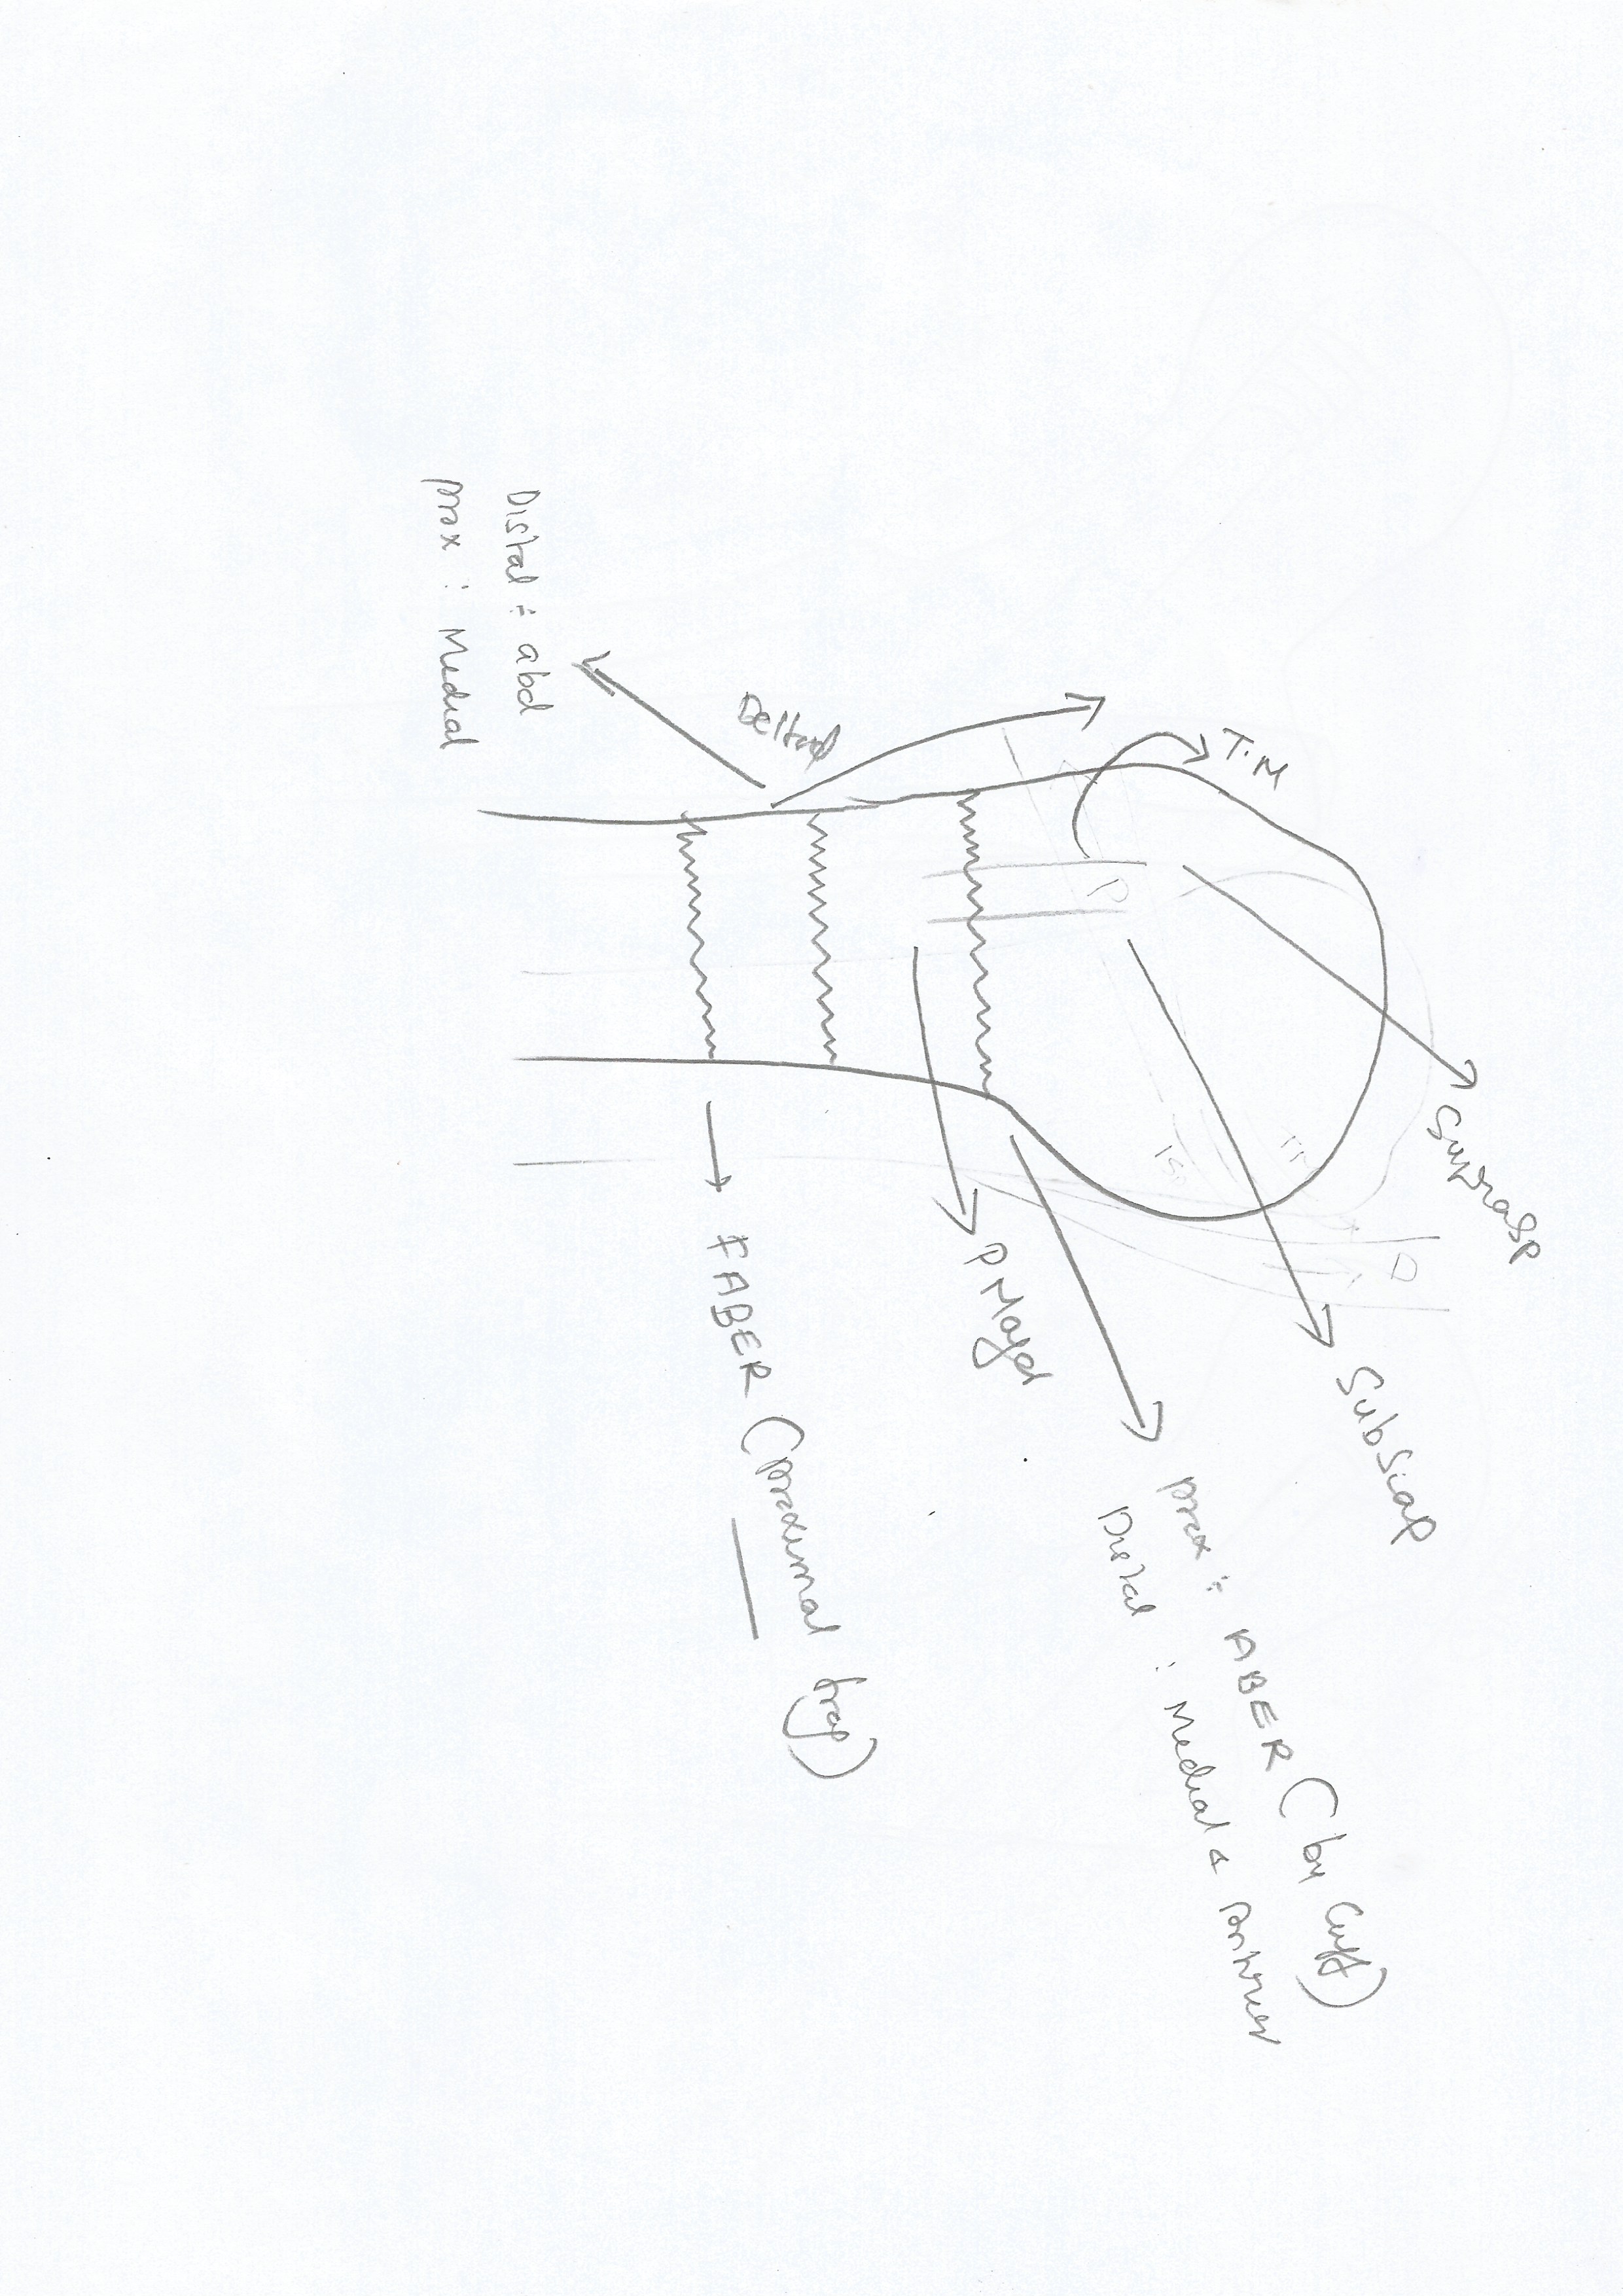 Suprasp
Subscap
T.M
prox : ABER (by Cuff)
Distal : Medial &
P Major
Deltoid
FABER (proximal frag)
Distal : abd
prox : Medial
D
P